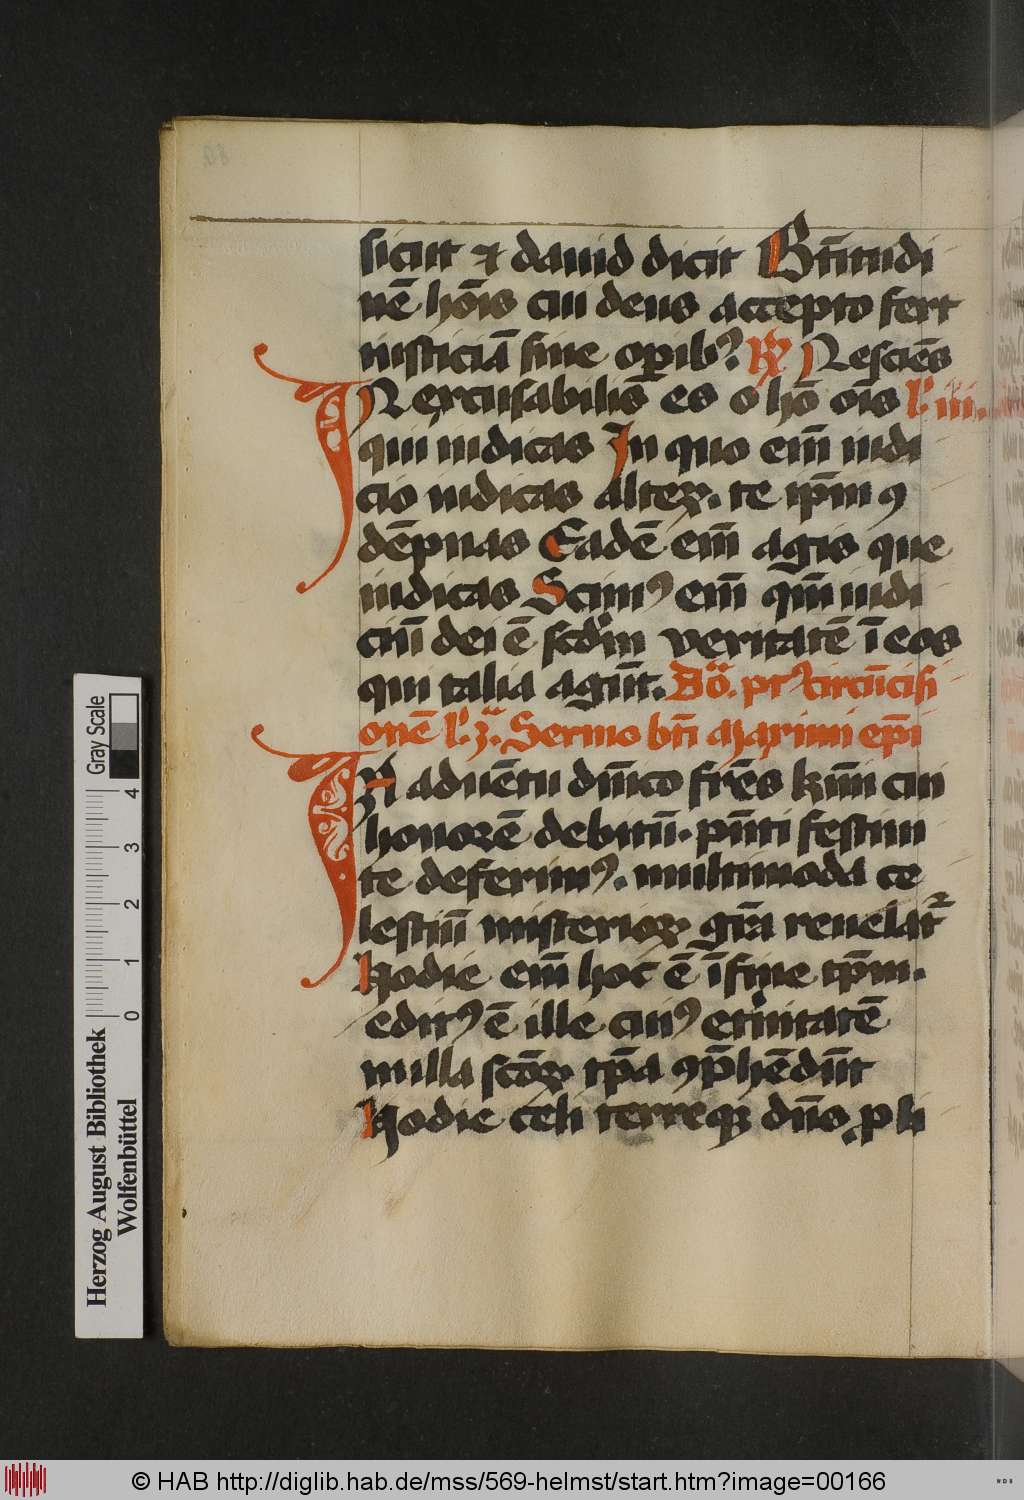 sicut et dauid dicit Btitudi
nē hōīs cui deus accepto fert
iusticiā sine opibꝰ. R Nesciēs
INexcusabilis es o hō oīs l' iii.
qui iudicas In quo eni iudi
cio iudicas alteꝝ. te ipm ꝯ
dēpnas Eadē eni agis que
iudicas Scimꝰ eni qm̄ iudi
ciū dei ē scdm veritatē ī eos
qui talia agūt. Dōᵃ. pꝰ circūcisi
onē l' 3ᵃ. Sermo btī Maximi epī
IN aduētu dnīco frēs kmi cui
honorē debitū. pn̄ti festiui
te deferimꝰ. multimoda ce
lestiū misterioꝝ grā reuelat
Hodie eni hoc ē ī fine tpm.
editꝰ ē ille cuiꝰ etnitatē
nulla scōꝝ tpa ꝯphēdūt
Hodie celi terreqꝫ dn̄s ꝓ li
Herzog August Bibliothek
Wolfenbüttel
Gray Scale
0 1 2 3 4
© HAB http://diglib.hab.de/mss/569-helmst/start.htm?image=00166